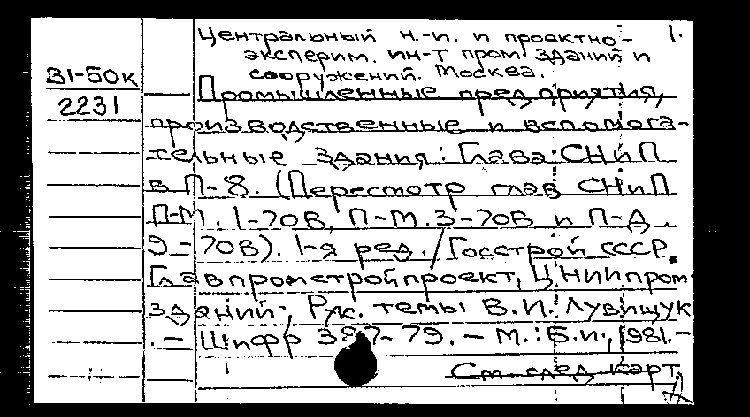 Центральный н.-и. и проектно- 1.
эксперим. ин-т пром. зданий и
сооружений. Москва.
31-50к
2231
Промышленные предприятия,
производственные и вспомога-
тельные здания: Глава: СНиП
в П-8. (Пересмотр глав СНиП
П-М. 1-70В, П-М.3-70В и П-Д.
9-70В). 1-я ред. / Госстрой СССР.
Главпромстройпроект, ЦНИИпром-
зданий; Рук. темы В.И. Лувищук
.- Шифр 387-79. - М.: Б.и., 1981.-
См. след карт.